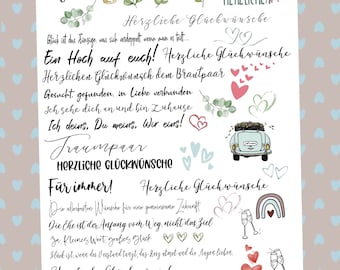 Herzliche Glückwünsche
Glück ist das Einzige, was sich verdoppelt wenn man es teilt.
Ein Hoch auf euch! Herzliche Glückwünsche
Herzlichen Glückwunsch dem Brautpaar
Gesucht, gefunden, in Liebe verbunden
Ich sehe dich an und bin Zuhause
Ich deins, Du meins, Wir eins!
Traumpaar
HERZLICHE GLÜCKWÜNSCHE
Für immer! Herzliche Glückwünsche
Die allerbesten Wünsche für eure gemeinsame Zukunft
Die Ehe ist der Anfang vom Weg, nicht das Ziel
Ja. Kleines Wort, großes Glück
Glück ist, wenn der Verstand tanzt, das Herz atmet und die Augen lieben.